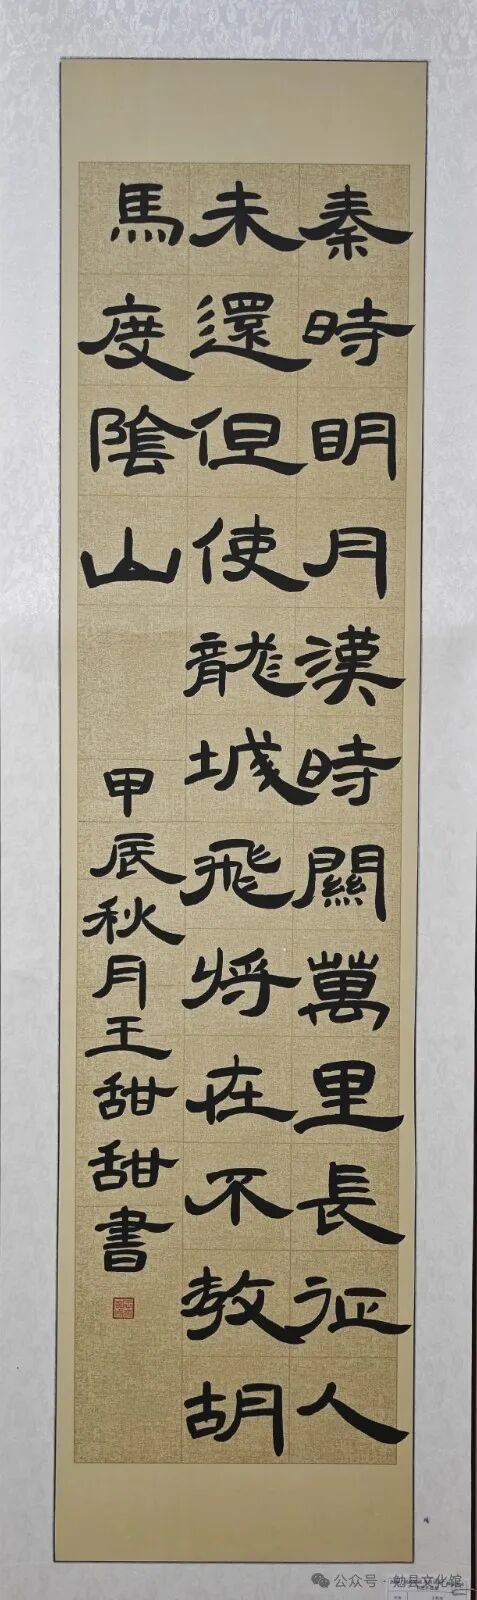 秦時明月漢時關萬里長征人
未還但使龍城飛将在不教胡
馬度陰山
甲辰秋月王甜甜書
公众号·勉县文化馆